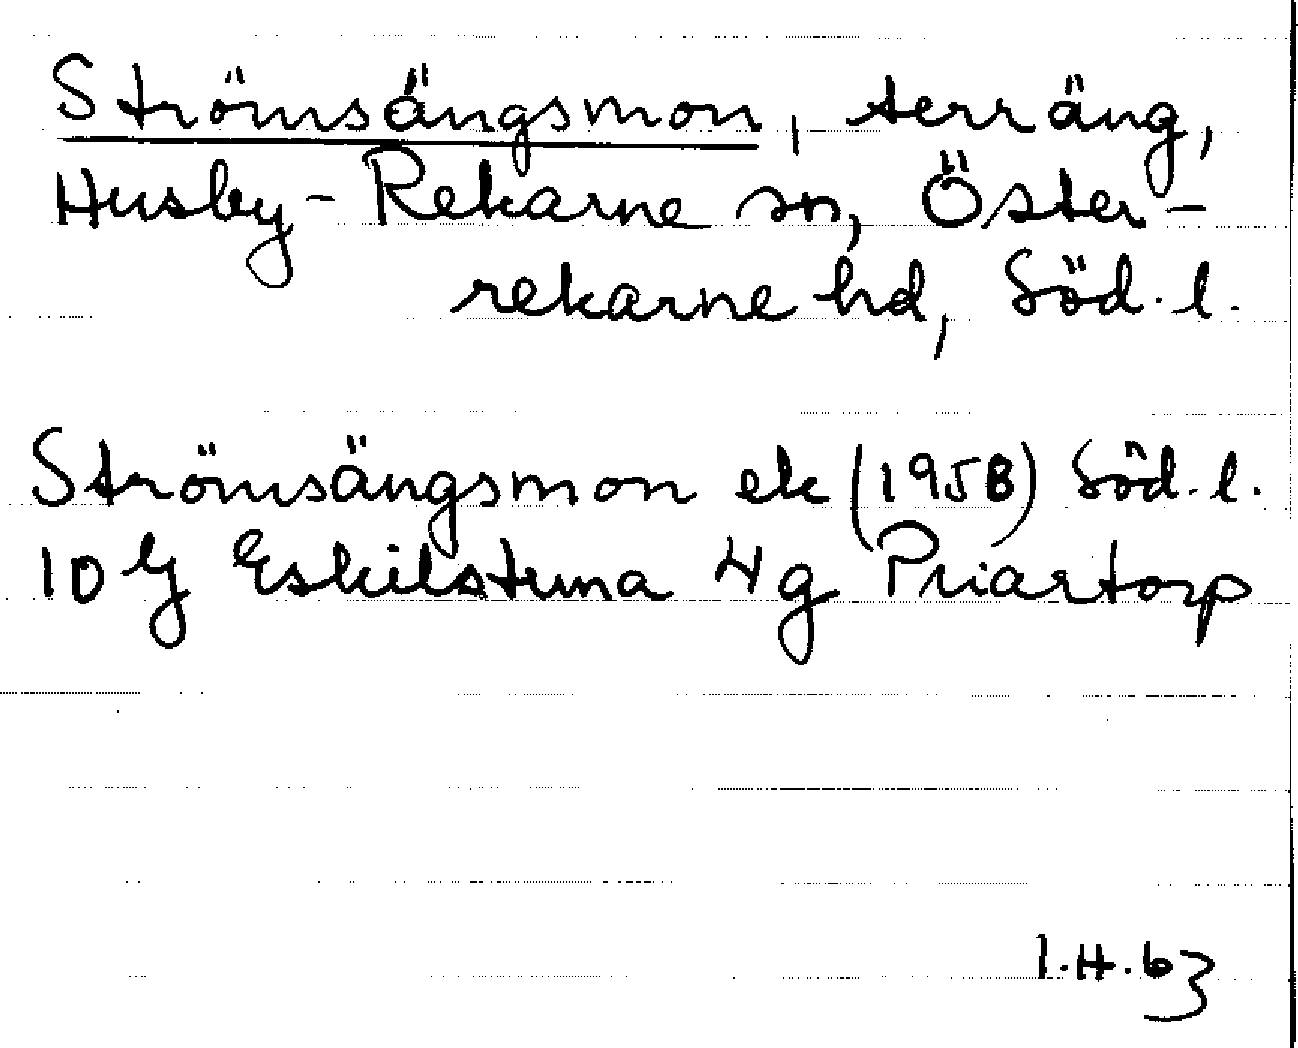 Strömsängsmon, terräng,
Husby-Rekarne sn, Öster-
rekarne hd, Söd.l.
Strömsängsmon ek (1958) Söd.l.
10 G Eskilstuna 4 g Priartorp
I.H.63